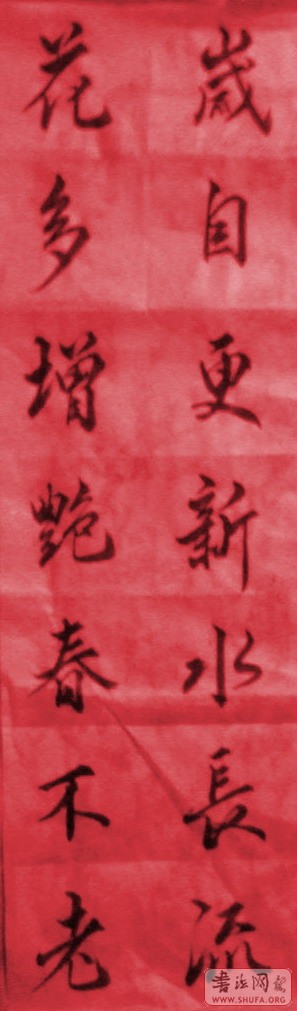 歲自更新水長流
花多增艷春不老
書法网
WWW.SHUFA.ORG